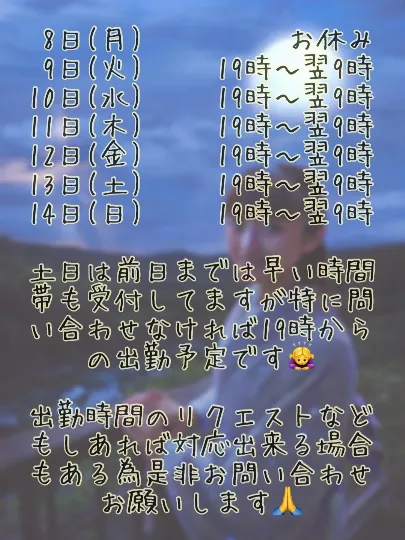 8日(月) お休み
9日(火) 19時～翌9時
10日(水) 19時～翌9時
11日(木) 19時～翌9時
12日(金) 19時～翌9時
13日(土) 19時～翌9時
14日(日) 19時～翌9時
土日は前日までは早い時間
帯も受付してますが特に問
い合わせなければ19時から
の出勤予定です🙇‍♀️
出勤時間のリクエストなど
もしあれば対応出来る場合
もある為是非お問い合わせ
お願いします🙏